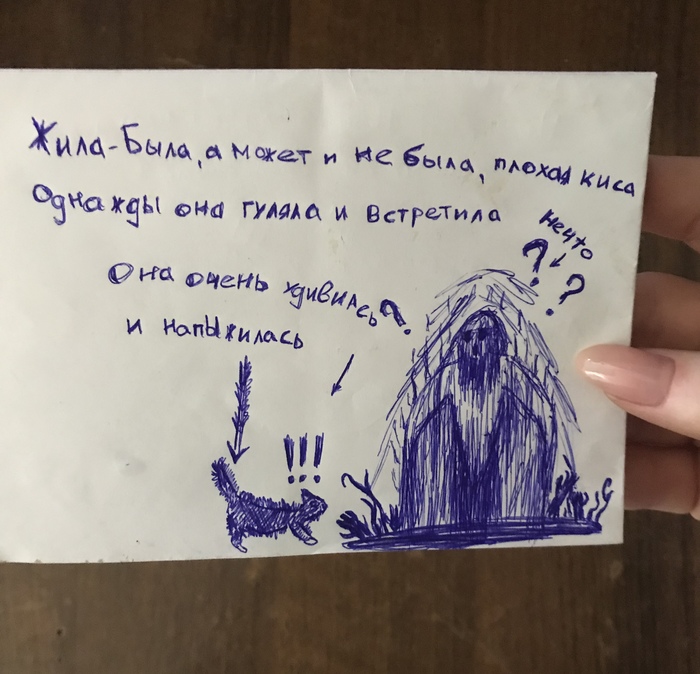 Жила-Была, а может и не была, плохая киса
Однажды она гуляла и встретила
нечто
? ?
Она очень удивилась
?
и напыжилась
!!!